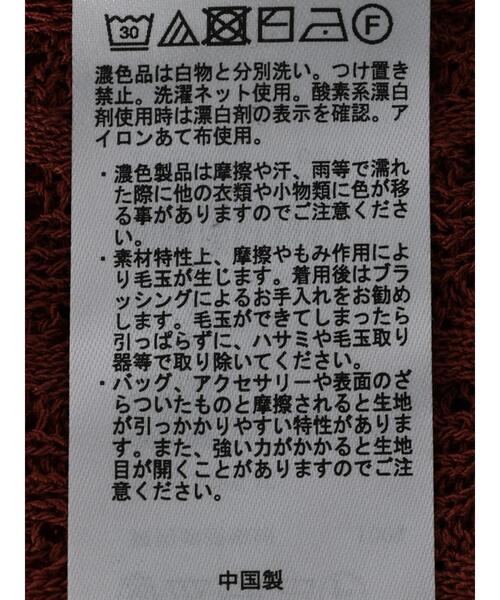 30 F
濃色品は白物と分別洗い。つけ置き
禁止。洗濯ネット使用。酸素系漂白
剤使用時は漂白剤の表示を確認。ア
イロンあて布使用。
・濃色製品は摩擦や汗、雨等で濡れ
た際に他の衣類や小物類に色が移
る事がありますのでご注意くださ
い。
・素材特性上、摩擦やもみ作用によ
り毛玉が生じます。着用後はブラ
ッシングによるお手入れをお勧め
します。毛玉ができてしまったら
引っぱらずに、ハサミや毛玉取り
器等で取り除いてください。
・バッグ、アクセサリーや表面のざ
らついたものと摩擦されると生地
が引っかかりやすい特性がありま
す。また、強い力がかかると生地
目が開くことがありますのでご注
意ください。
中国製